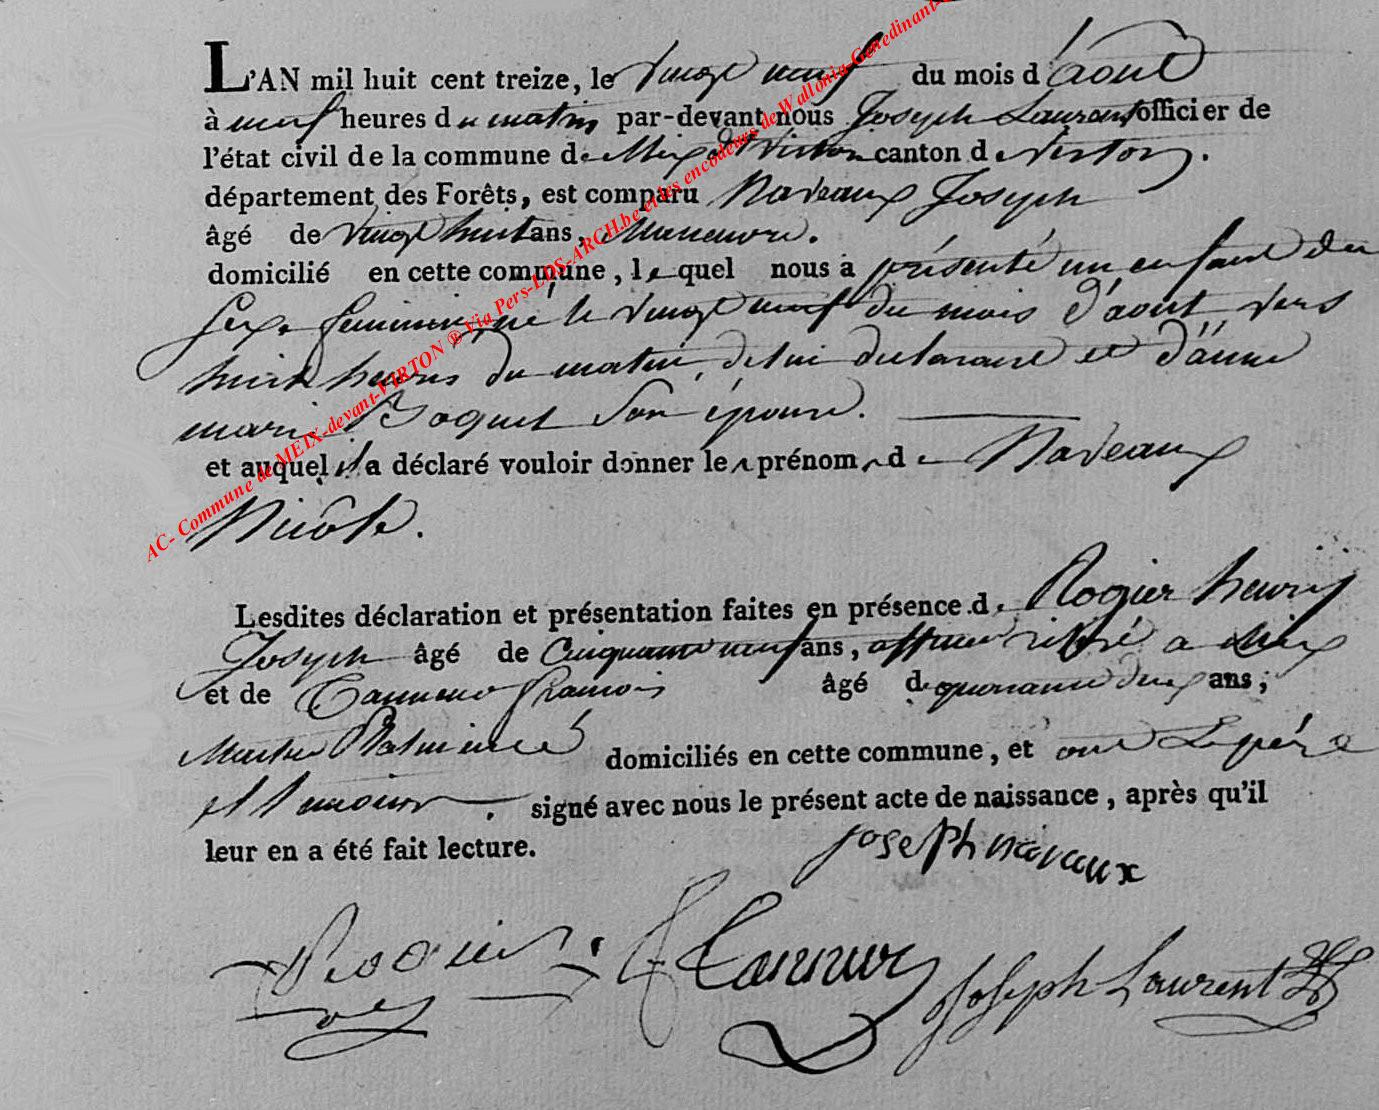 L'AN mil huit cent treize, le vingt neuf du mois d'aout
à neuf heures du matin par-devant nous Joseph Laurent officier de
l'état civil de la commune de Meix dt Virton canton de Virton.
département des Forêts, est comparu Naveaux Joseph
âgé de vingt huit ans, Maneuvre.
domicilié en cette commune, lequel nous a présenté un enfant du
sexe feminin, né le vingt neuf du mois d'aout vers
huit heures du matin, de lui declarant et d'anne
marie Boquet son épouse.
et auquel il a déclaré vouloir donner le prénom de Naveaux
Nicole.
Lesdites déclaration et présentation faites en présence de Rogier henry
Joseph âgé de Cinquante neuf ans, retiré a Meix
et de François âgé de quarante deux ans;
domiciliés en cette commune, et ont Le père
et temoins. signé avec nous le présent acte de naissance, après qu'il
leur en a été fait lecture.
joseph navaux
Rogier Joseph Laurent
AC- Commune de MEIX-devant-VIRTON ® Via Pers-LDS-ARCH.be et les encodeurs de Wallonia-Genedinant-